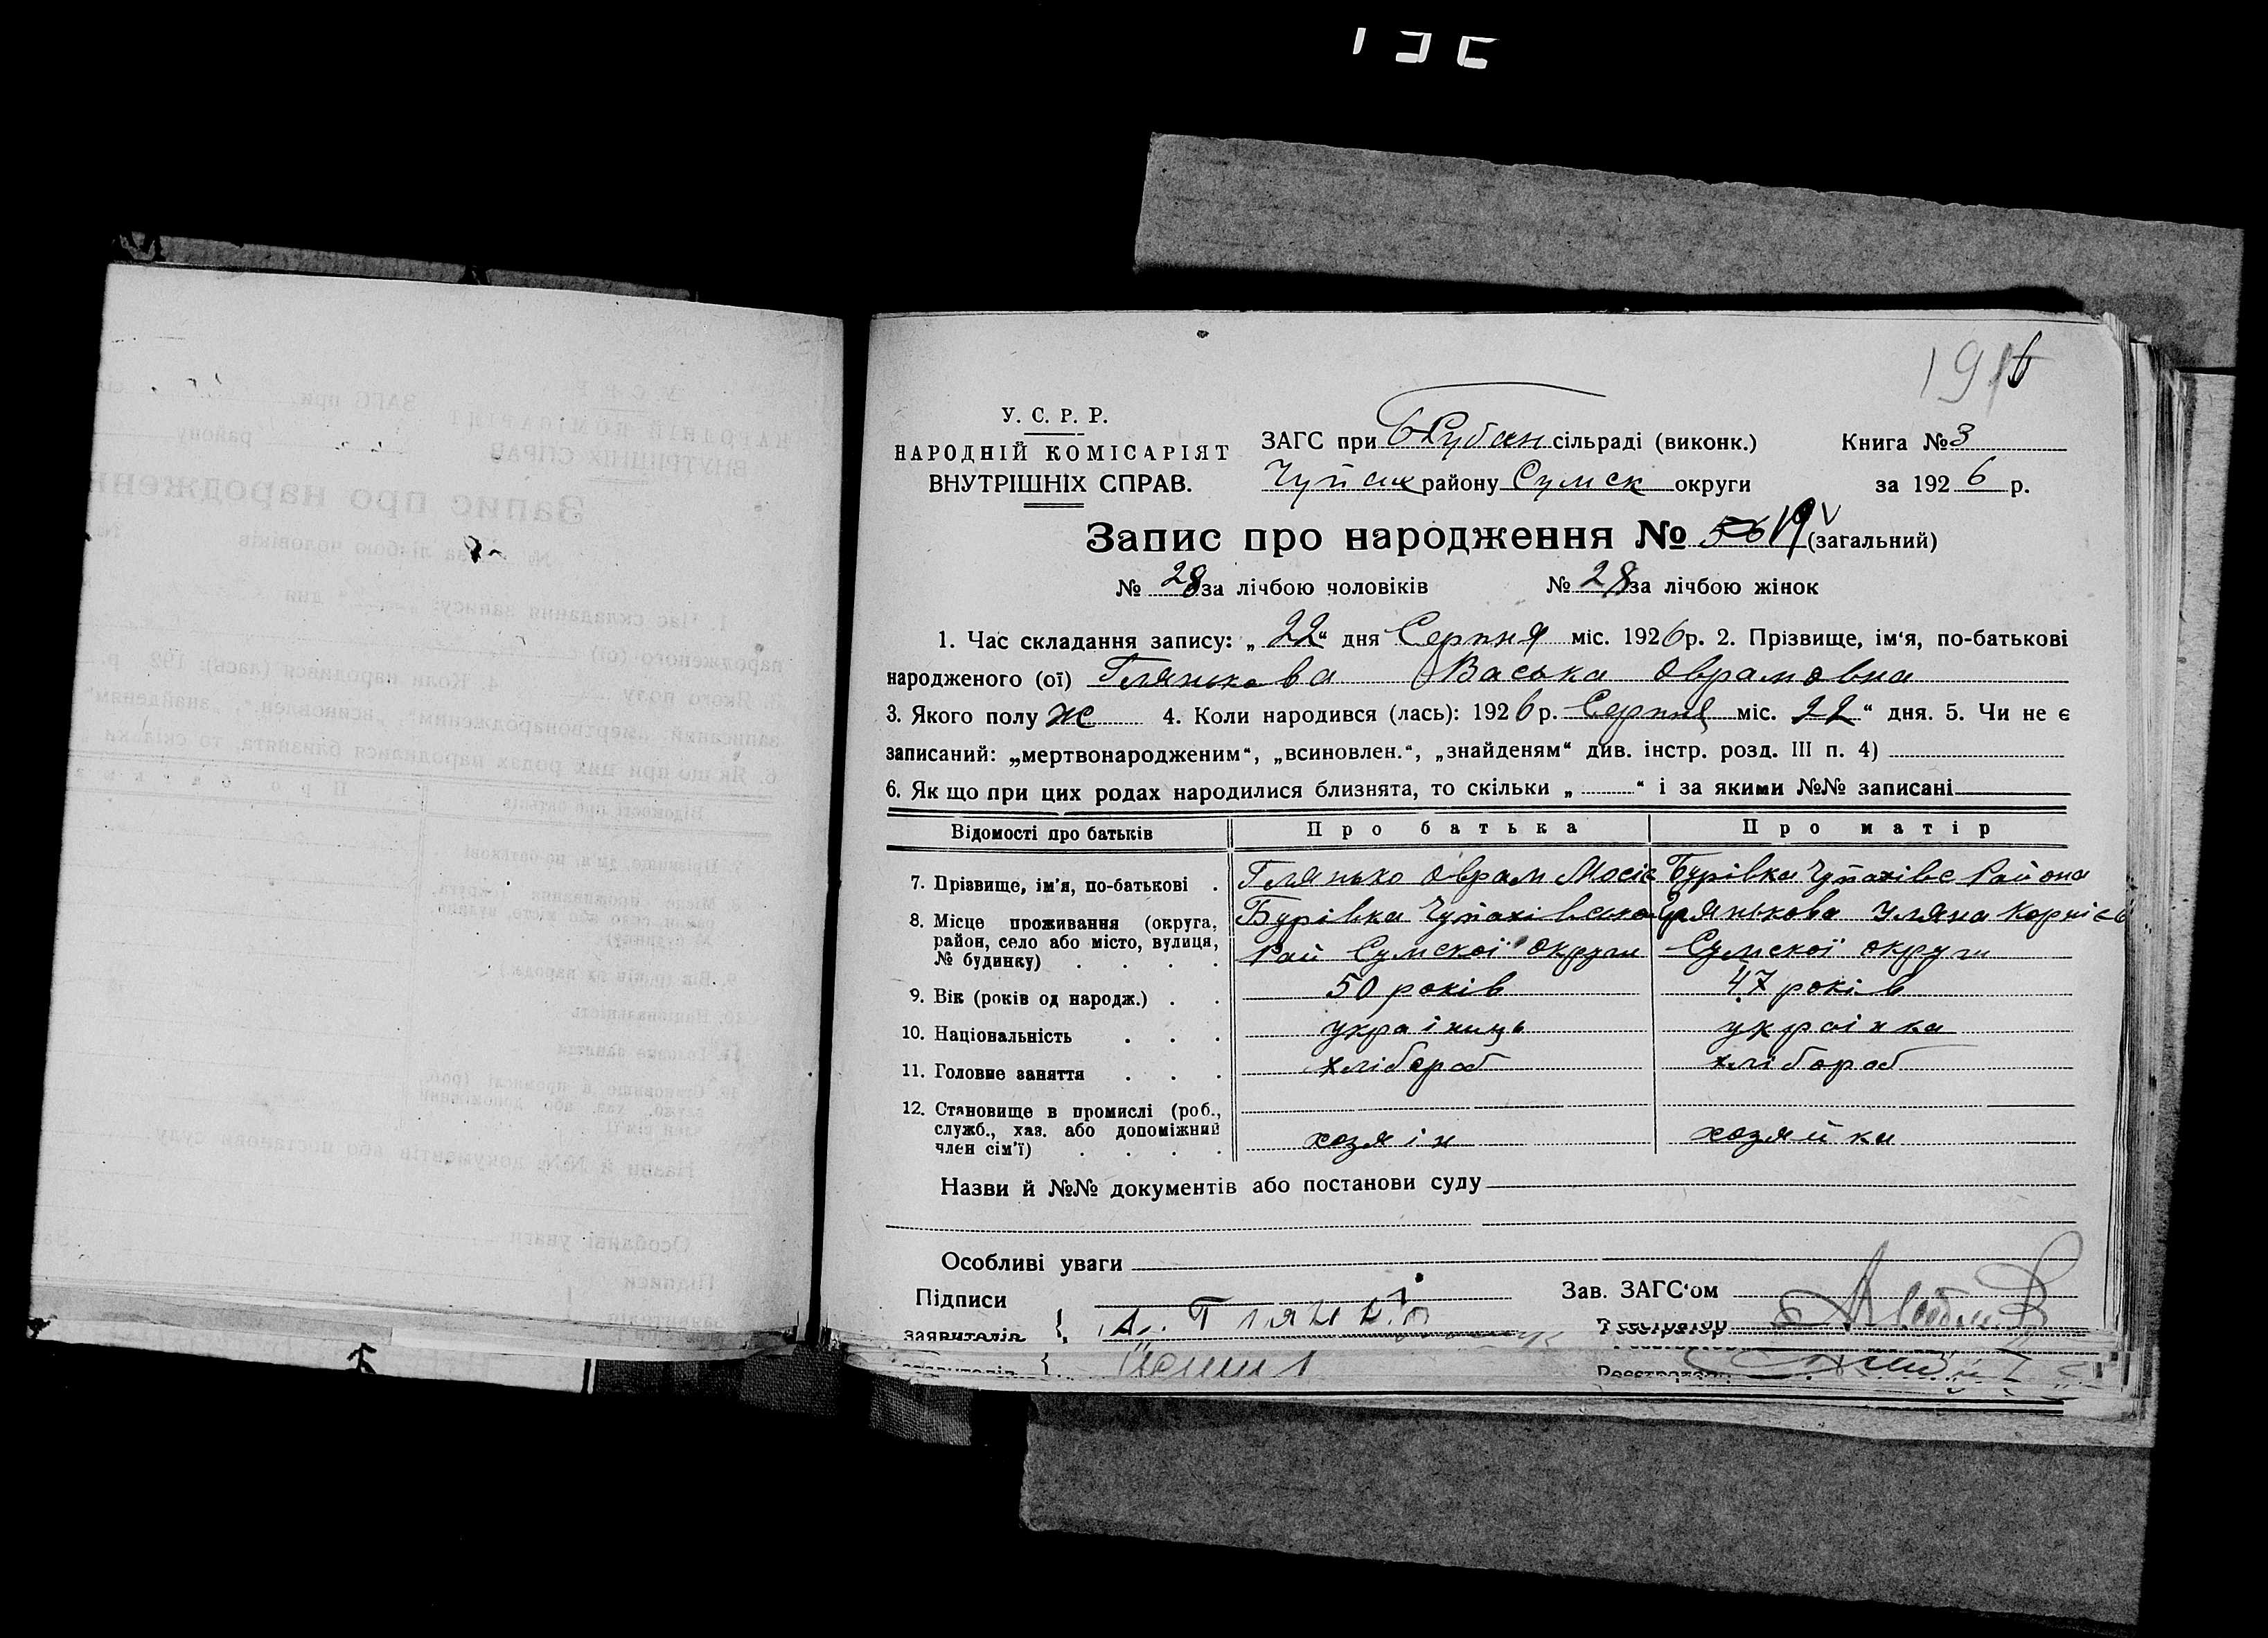 У. С. Р. Р.
НАРОДНІЙ КОМІСАРІЯТ
ВНУТРІШНІХ СПРАВ.
ЗАГС при сільраді (виконк.) Книга № 3
району Сумск округи за 1926 р.
Запис про народження № (загальний)
№ 28 за лічбою чоловіків № 28 за лічбою жінок
1. Час складання запису: „22“ дня Серпня міс. 1926 р. 2. Прізвище, ім‘я, по-батькові
народженого (ої) Глянькова Васька Оврамовна
3. Якого полу ж 4. Коли народився (лась): 1926 р. Серпня міс. 22“ дня. 5. Чи не є
записаний: „мертвонародженим“, „всиновлен.“, „знайденям“ див. інстр. розд. III п. 4)
6. Як що при цих родах народилися близнята, то скільки „ “ і за якими №№ записані
Відомості про батьків Про батька Про матір
7. Прізвище, ім'я, по-батькові . Глянько Оврам Мосіє Бурівка Чупахівс Района
8. Місце проживання (округа, район, село або місто, вулиця, № будинку) . . . . Бурівка Чупахівсько Рай Сумскої округи Глянькова Уляна Корніев Сумскої округи
9. Вік (років од народж.) . . 50 років 47 років
10. Національність . . . україниць українка
11. Головне заняття . . . хлібороб хлібороб
12. Становище в промислі (роб., служб., хаз. або допоміжний член сім'ї) . . . . хозяін хозяйка
Назви й №№ документів або постанови суду
Особливі уваги
Підписи Зав. ЗАГС‘ом
заявителів { А. Глянько Реєстратор
Реєстратор